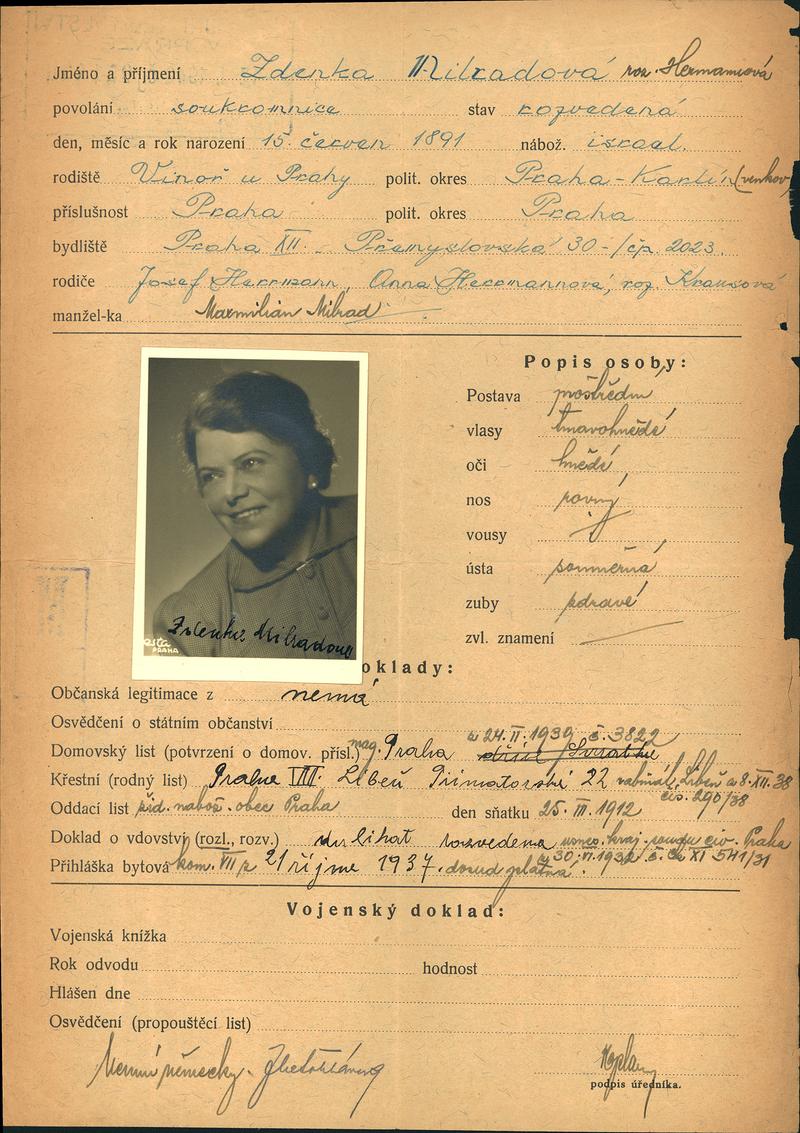 Jméno a příjmení Zdenka Milradová roz. Hermannová
povolání soukromnice stav rozvedená
den, měsíc a rok narození 15. červen 1891 nábož. israel.
rodiště Vinoř u Prahy polit. okres Praha-Karlín (venkov)
příslušnost Praha polit. okres Praha
bydliště Praha XII. Přemyslovská 30-/čp. 2023.
rodiče Josef Herrmann, Anna Herrmannová, roz. Krausová
manžel-ka Maxmilián Milrad
Popis osoby:
Postava prostřední
vlasy tmavohnědé
oči hnědé
nos rovný
vousy
ústa souměrná
zuby zdravé
zvl. znamení
Zdenka Milradová
PRAHA
oklady:
Občanská legitimace z nemá
Osvědčení o státním občanství
z 24. II. 1939 č. 3822
Domovský list (potvrzení o domov. přísl.) mag. Praha
Křestní (rodný list) Praha VIII. Libeň Primátorská 22 Libeň z 8. XII. 38
čís. 290/38
Oddací list žid. nábož. obec Praha den sňatku 25. III. 1912
Doklad o vdovství (rozl., rozv.) rozvedena usnes. kraj. soudu civ. Praha
z 30. VI. 1932 č. Ck XI 541/31
Přihláška bytová kom. VII z 21 října 1937. dosud platná.
Vojenský doklad:
Vojenská knížka
Rok odvodu hodnost
Hlášen dne
Osvědčení (propouštěcí list)
Neumí německy.
podpis úředníka.